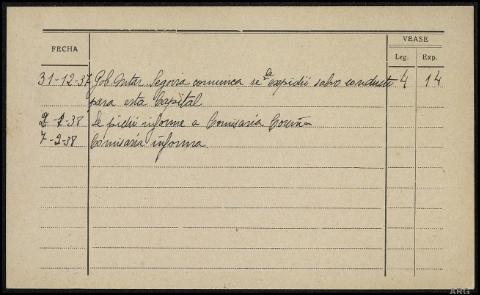 FECHA
VEASE
Leg. Exp.
31-12-37 Gob. Inter. Segovia comunica se la expidió salvo conducto 4 14
para esta Capital
2-2-38 Se pidió informe a Comisaría Coruña
7-2-38 Comisaría informa.
ARG